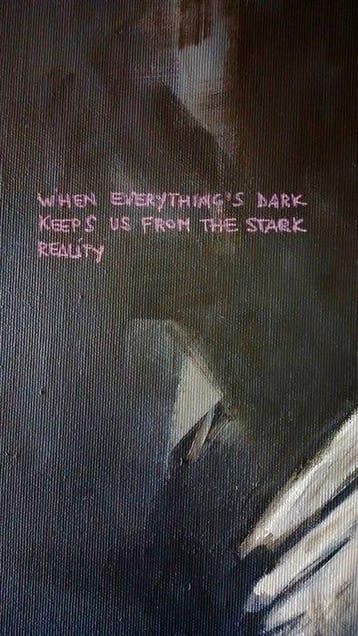 WHEN EVERYTHING'S DARK
KEEPS US FROM THE STARK
REALITY